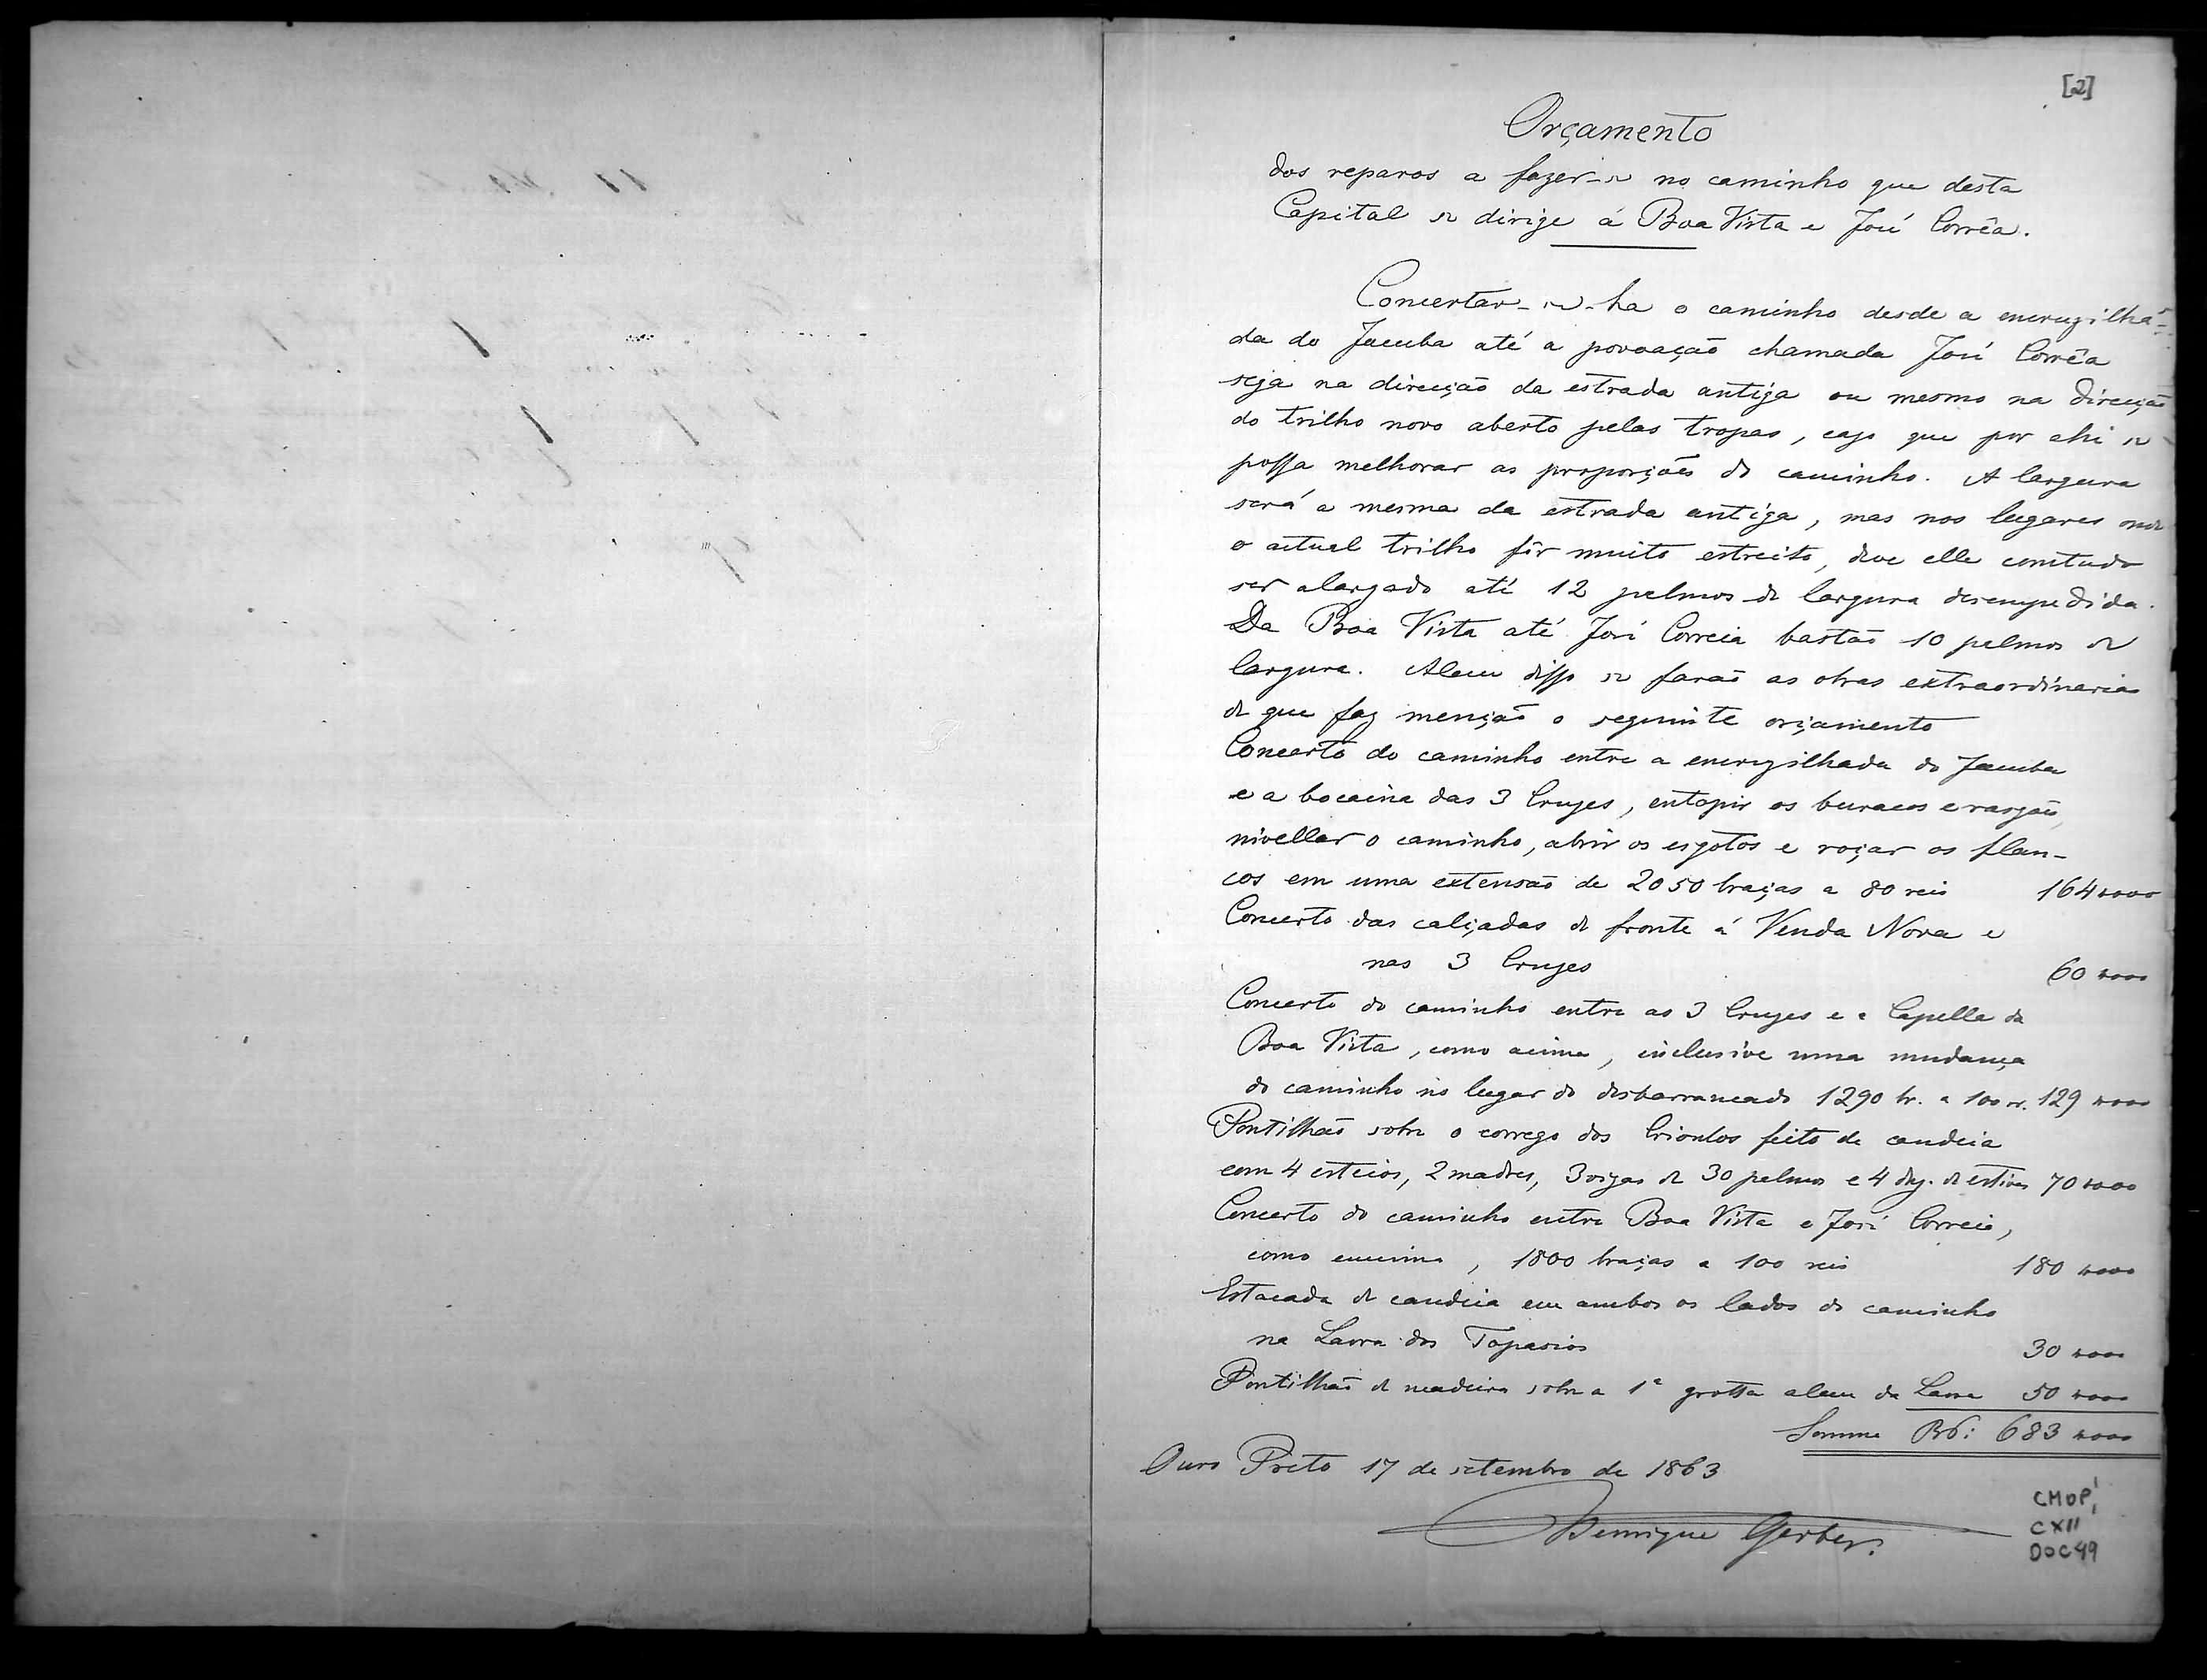 [2]
Orçamento
dos reparos a fazer-se no caminho que desta
Capital se dirige á Boa Vista e José Corrêa.
Concertar-se-ha o caminho desde a encruzilhá-
da do Jacuba até a povoação chamada José Corrêa
seja na direcção da estrada antiga ou mesmo na direcção
do trilho novo aberto pelas tropas, caso que por ahi se
possa melhorar as proporções do caminho. A largura
será a mesma da estrada antiga, mas nos lugares onde
o actual trilho fôr muito estreito, deve elle comtudo
ser alargado até 12 palmos de largura desempedida.
Da Boa Vista até José Correia bastão 10 palmos de
largura. Alem disso se farão as obras extraordinarias
de que faz menção o seguinte orçamento
Concerto do caminho entre a encruzilhada do Jacuba
e a bocaina das 3 Cruzes, entupir os buracos e rasgões,
nivellar o caminho, abrir os esgotos e roçar os flan-
cos em uma extensão de 2050 braças a 80 reis 164$000
Concerto das calçadas de fronte á Venda Nova e
nas 3 Cruzes 60$000
Concerto do caminho entre as 3 Cruzes e a Capella da
Boa Vista, como acima, inclusive uma mudança
do caminho no lugar do desbarrancado 1290 br. a 100 r. 129$000
Pontilhão sobre o corrego dos Crioulos feito de candeia
com 4 esteios, 2 madres, 3 vigas de 30 palmos e 4 duz. de estivas 70$000
Concerto do caminho entre Boa Vista e José Correia,
como encima, 1800 braças a 100 reis 180$000
Estacada de candeia em ambos os lados do caminho
na Lavra dos Topasios 30$000
Pontilhão de madeira sobre a 1ª grotta alem da Lavra 50$000
Somma Rs: 683$000
Ouro Preto 17 de setembro de 1863
Henrique Gerber.
CMOP,
CXII
DOC49